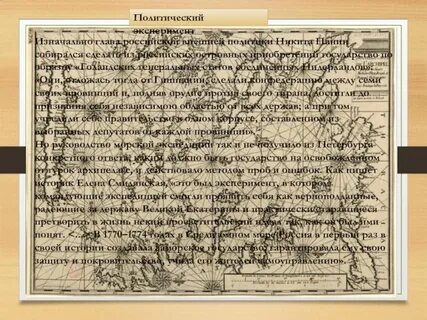 Политический
эксперимент
Изначально глава российской внешней политики Никита Панин
собирался сделать из российских островных приобретений государство по
образцу «Голандских генеральных статов соединения, Нидерландов»:
«Они, отложась тогда от Гишпании, сделали конфедерацию между семи
своих провинций и, подняв оружие против своего тирана, достигли до
признания себя независимою областью от всех держав; а притом
учредили себе правительство в одном корпусе, составленном из
выбранных депутатов от каждой провинции».
Но руководство морской экспедиции так и не получило из Петербурга
конкретного ответа, каким должно быть государство на освобожденном
от турок архипелаге, и действовало методом проб и ошибок. Как пишет
историк Елена Смилянская, «это был эксперимент, в котором
командующие экспедицией смогли проявить себя как верноподданные,
радеющие за державу Великой Екатерины и практически старающиеся
претворить в жизнь некий просветительский идеал так, как он был ими
понят. <...> В 1770–1774 годах в Средиземном море Россия в первый раз в
своей истории создавала заморское государство, гарантировала ему свою
защиту и покровительство, учила его жителей самоуправлению».